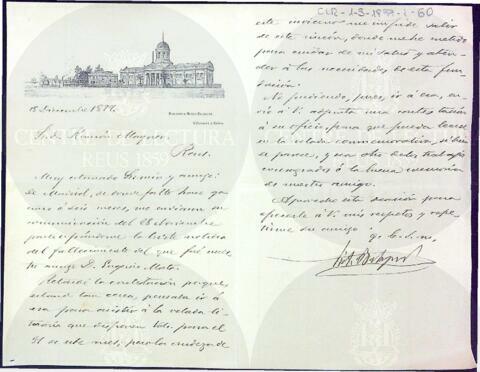 CLR-1-3-1897-1-60
Biblioteca Museo Balaguer
Villanueva y Geltrú
18 Diciembre 1897.
S. D. Ramón
Reus.
Muy estimado Ramón y amigo:
De Madrid, de donde falto hace
cinco ó seis meses, me envian su
comunicación del 28 Noviembre
participándome la triste noticia
del fallecimiento del que fué nues-
tro amigo D. Eugenio Mata.
Retardé la contestación porque,
estando tan cerca, pensaba ir á
esa para asistir á la velada li-
teraria que disponen Vds. para el
21 de este mes, pero la crudeza de
este invierno me impide salir
de este rincón, donde me he metido
para cuidar de mi salud y aten-
der á las necesidades de esta fun-
dación.
No pudiendo, pues, ir á esa, en-
vío á V. adjunta una contestación
á su oficio, para que pueda leerse
en la velada conmemorativa, si bien
le parece, y una obra
consagrados á la buena memoria
de nuestro amigo.
Aprovecho esta ocasión para
ofrecerle á V. mis respetos y repe-
tirme su amigo
q. b. s. m.
CENTRE DE LECTURA
REUS 1859